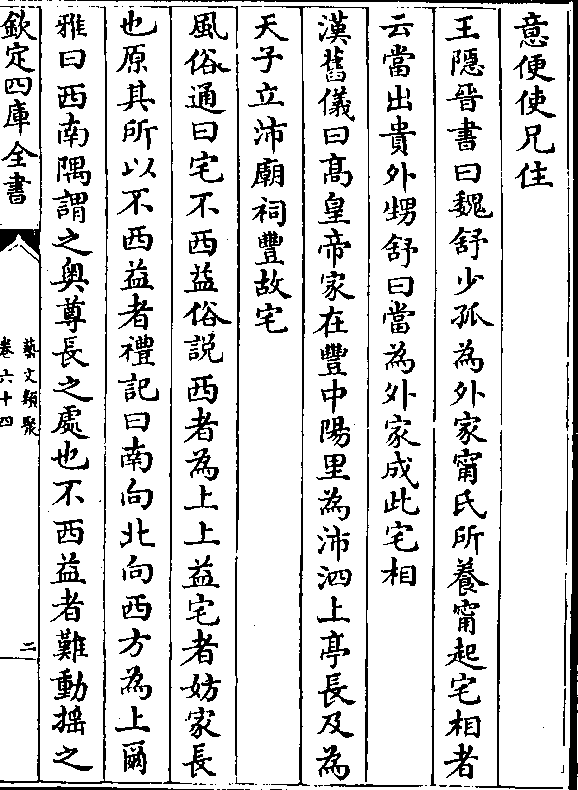 意便使兄住
王隱晉書曰魏舒少孤為外家甯氏所養甯起宅相者
云當出貴外甥舒曰當為外家成此宅相
漢舊儀曰高皇帝家在豐中陽里為沛泗上亭長及為
天子立沛廟祠豐故宅
風俗通曰宅不西益俗說西者為上上益宅者妨家長
也原其所以不西益者禮記曰南向北向西方為上爾
雅曰西南隅謂之奧尊長之處也不西益者難動搖之
欽定四庫全書
藝文類聚
卷六十四
二